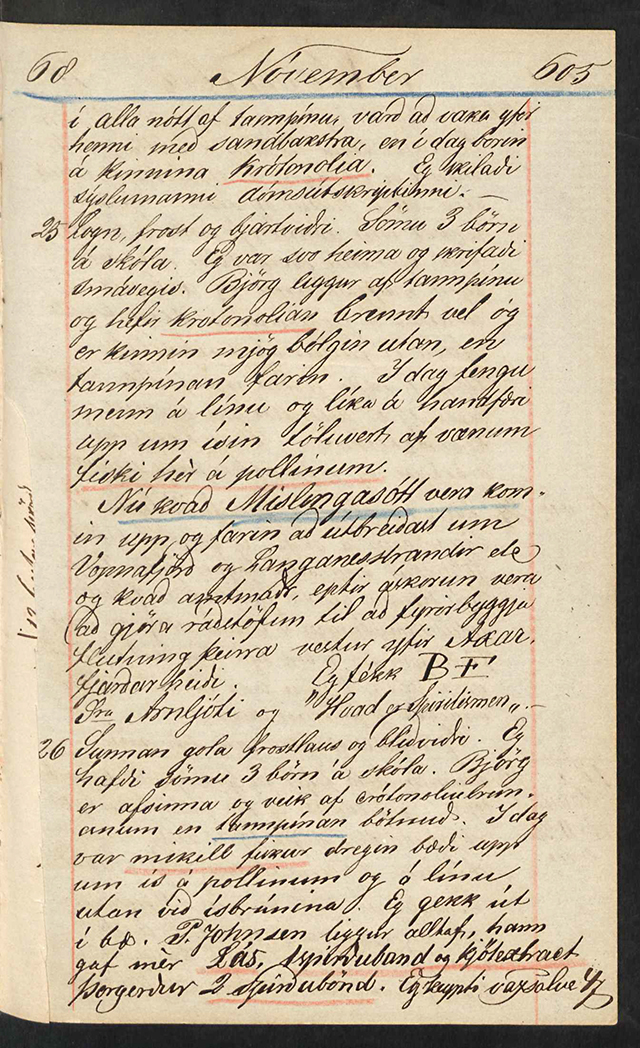 68 Nóvember 605
í alla nótt af tannpínu, varð að vaka yfir
henni með sandbakstra, en í dag borin
á kinnina Krótonolía. Eg skilaði
sýslumanni dómsútskriptinni. —
25 Logn, frost og bjartviðri. Sömu 3 börn
á skóla. Eg var svo heima og skrifaði
smávegis. Björg liggur af tannpínu
og hefir krotonolían brennt vel og
er kinnin mjög bólgin utan, en
tannpínan farin. I dag fengu
menn á línu og líka á handfæri
upp um ísin töluvert af vænum
fiski hèr á pollinum.
Nú kvað Mislingasótt vera kom-
in upp og farin að útbreiðast um
Vopnafjörð og Langanesstrandir etc
og kvað amtmaðr, eptir áskorun vera
að gjöra ráðstöfun til að fyrirbyggja
flutning þeirra vestur yfir Axar-
fjarðarheiði. Eg fékk B F
Frá Arnljóti og "Hvad er Spiritismen„. —
26 Sunnan gola frostlaus og blíðviðri. Eg
hafði sömu 3 börn á skóla. Björg
er afsinna og veik af crótonolíubrun-
anum en tannpínan bötnuð. I dag
var mikill fiskur dregin bæði upp
um ís á pollinum og á línu
utan við ísbrúnina. Eg gekk út
í bæ. P. Johnsen liggur alltaf, hann
gaf mér Lás, spírðuband og kjötextract
Þorgerður 2 spírðubönd. Eg keypti vaxsalve